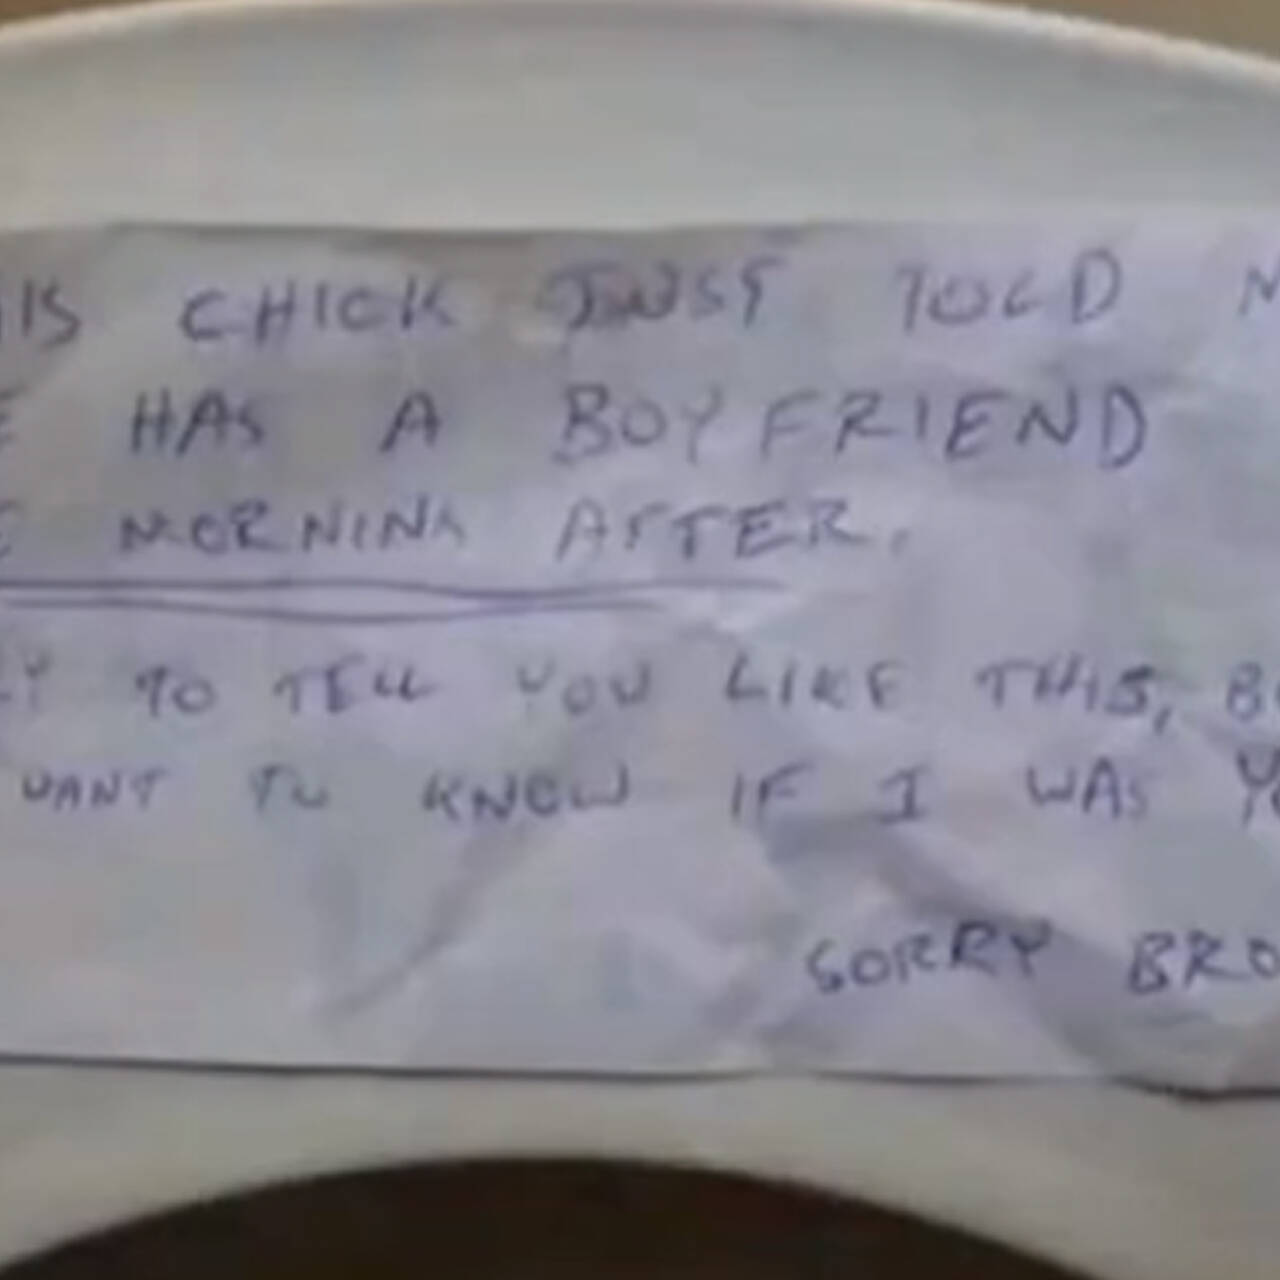 HIS CHICK JUST TOLD M
E HAS A BOYFRIEND
E MORNING AFTER.
Y TO TELL YOU LIKE THIS, B
WANT TO KNOW IF I WAS YO
SORRY BRO